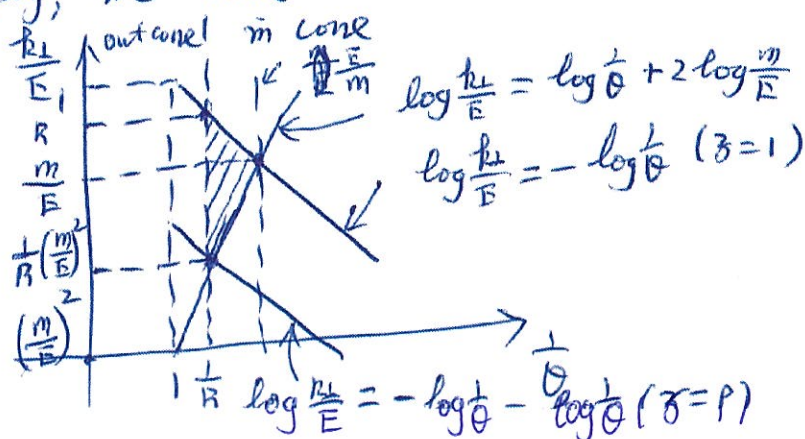 out cone in cone
k⊥/E
E/m
1
R
m/E
1/R (m/E)²
(m/E)²
log k⊥/E = log 1/θ + 2 log m/E
log k⊥/E = - log 1/θ (z=1)
1 1/R
1/θ
log k⊥/E = - log 1/θ - log 1/θ (z=ρ)